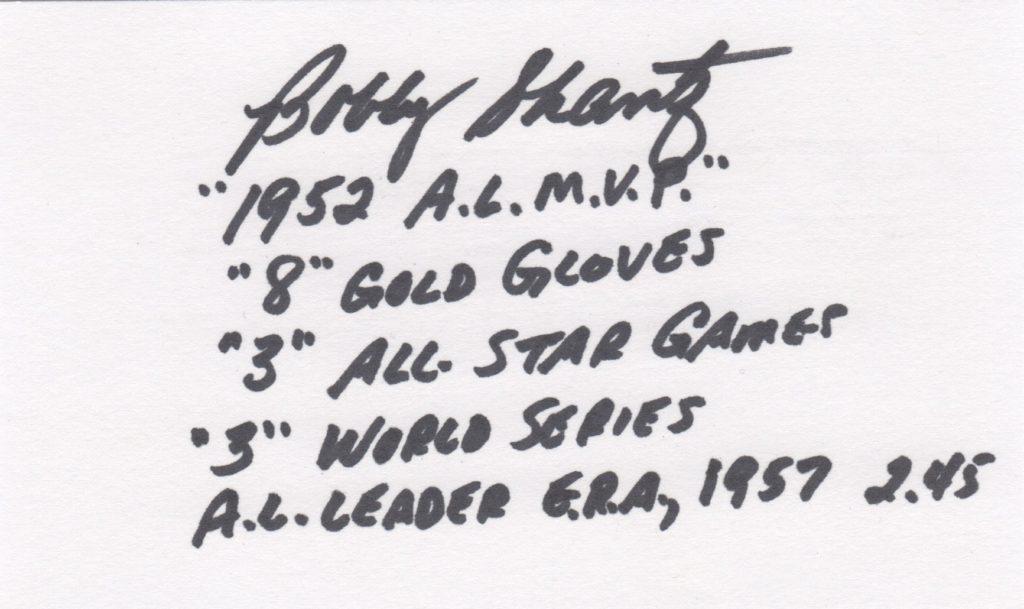 Bobby Shantz
"1952 A.L. M.V.P."
"8" GOLD GLOVES
"3" ALL-STAR GAMES
"3" WORLD SERIES
A.L. LEADER E.R.A., 1957 2.45